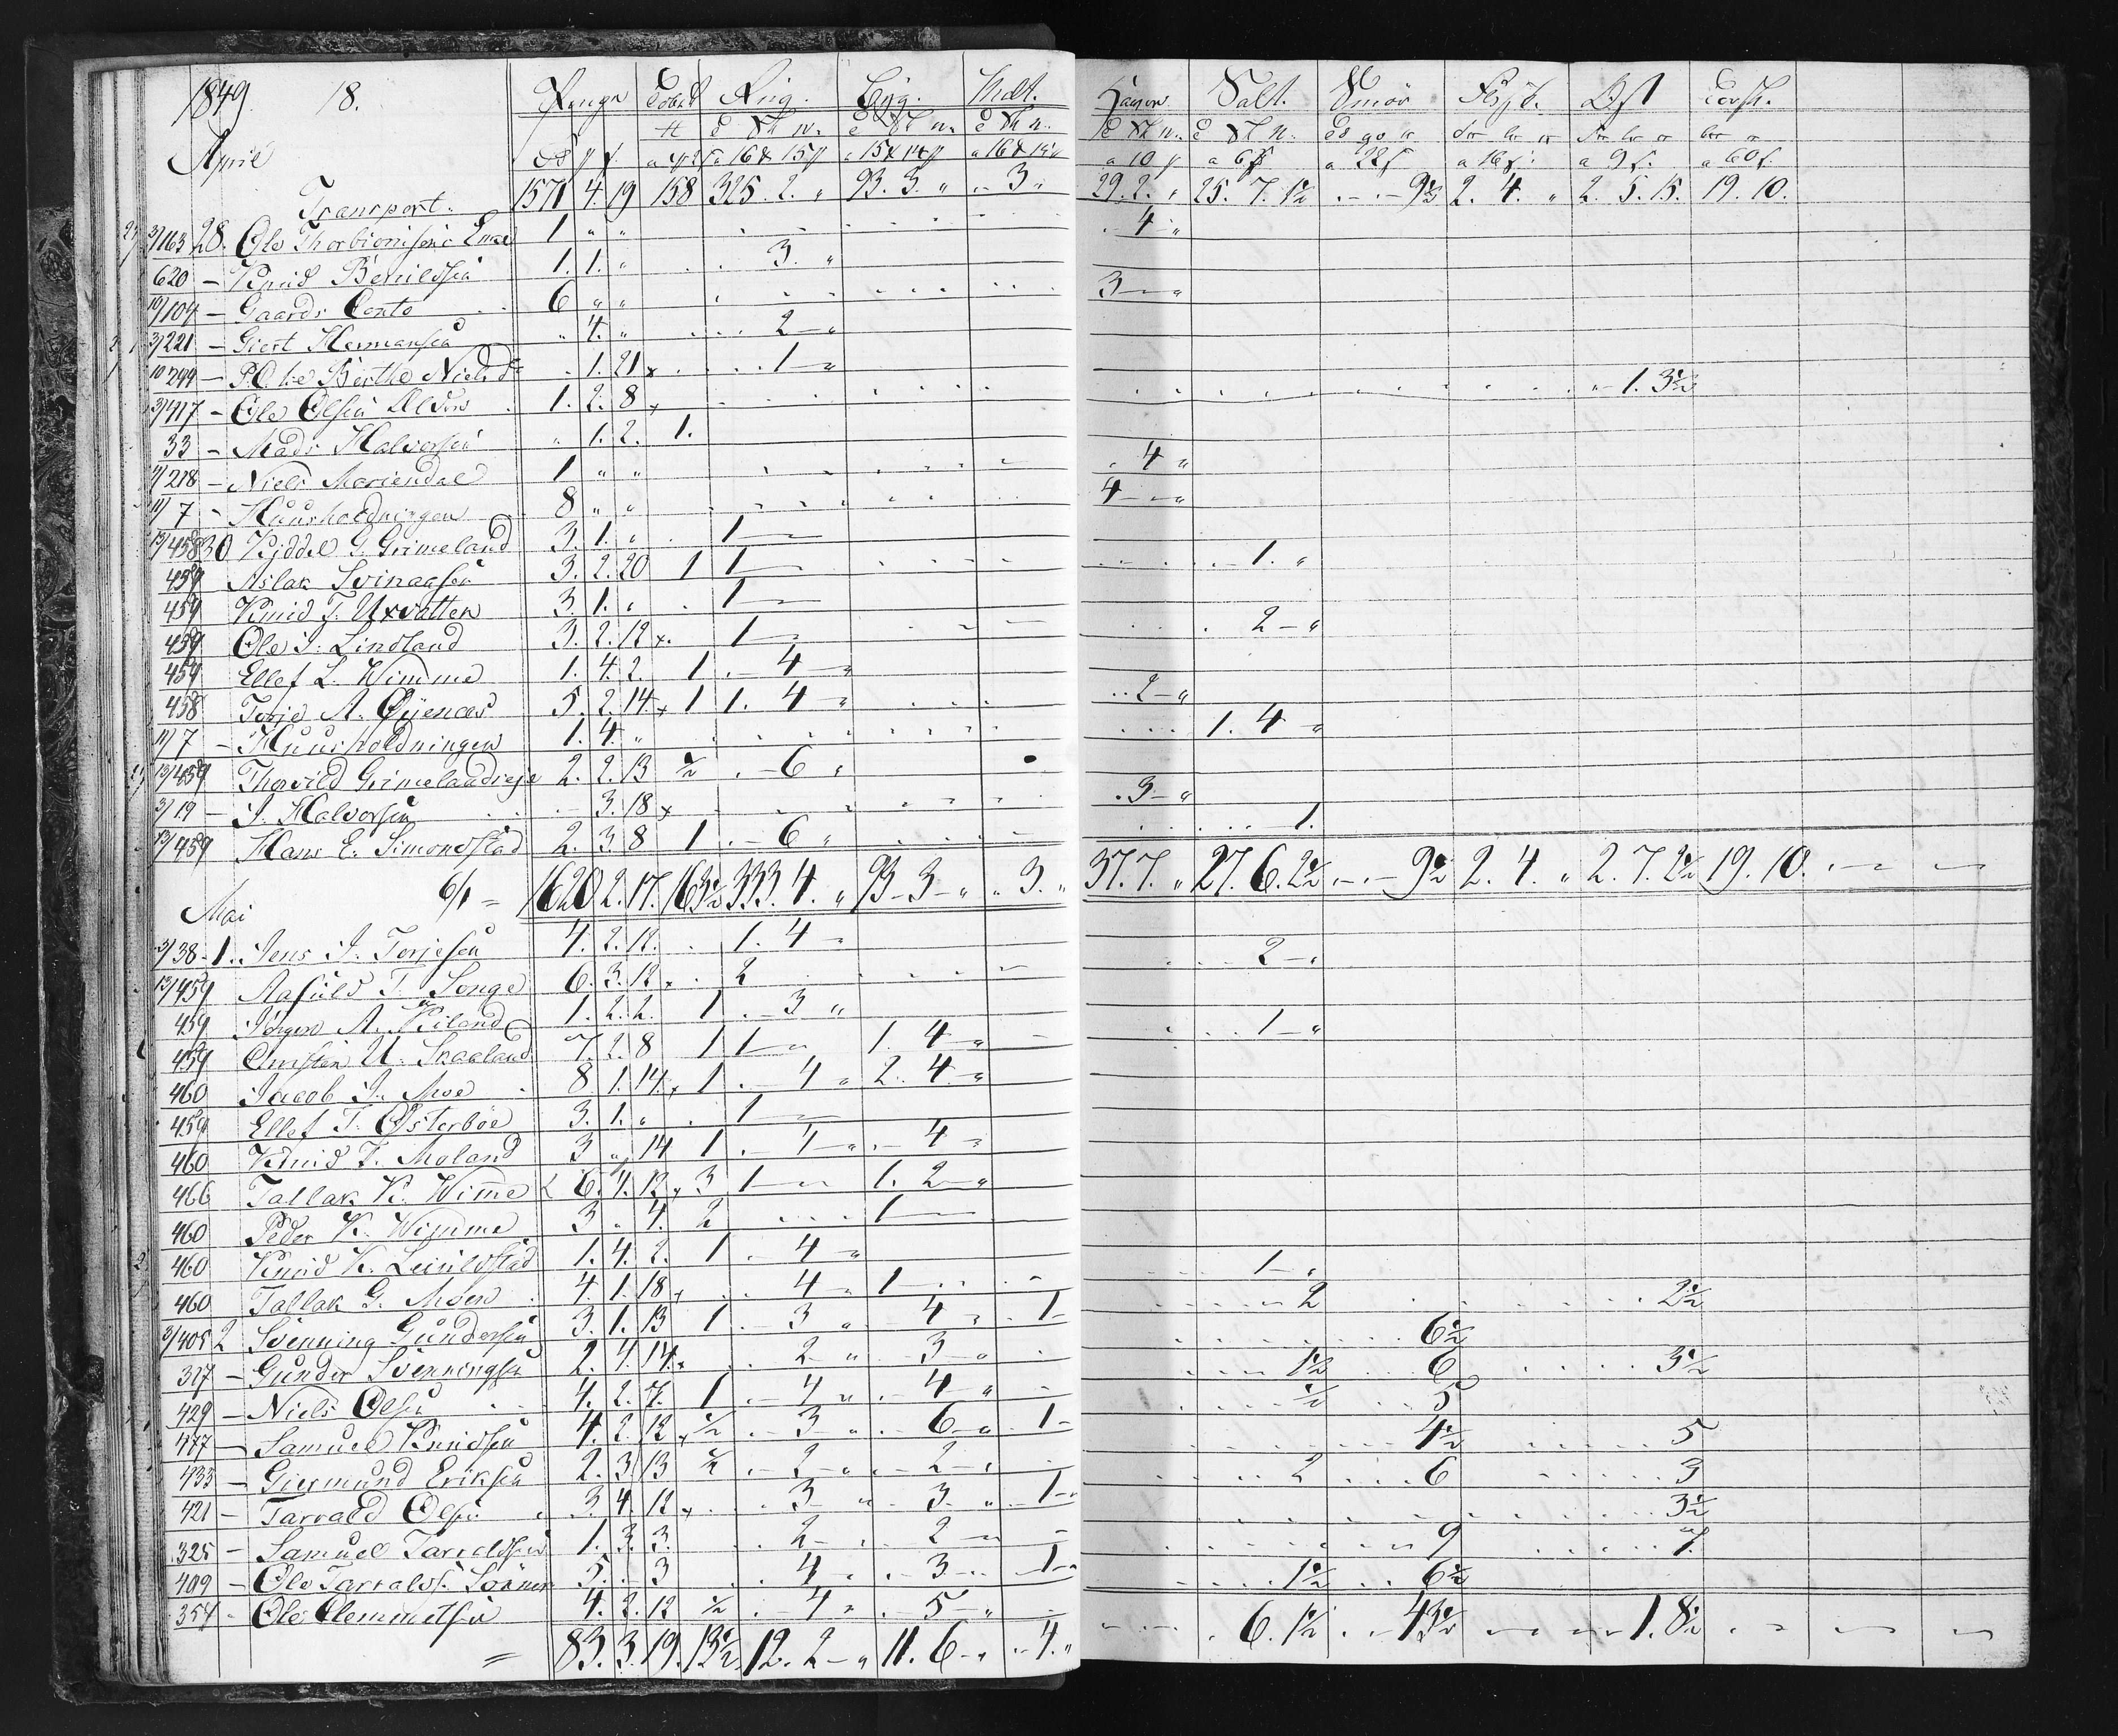 1849 18. Penge Tobak Rug. Byg. Malt. Havre Salt. Smör Flesk. Ost Torsk.
April
a 16 a 15 a 10 a 22 a 16 a 9 a 60
Transport. 1571 4. 19 158 325. 2. " 93. 3. " " 3 " 29. 2. " 25. 7. 1½ 9½ 2. 4. " 2. 5. 15. 19. 10.
3/163 28. Ole Thorbiönsens Enke 1 " " 4 "
620 — Knud Benildsen 1. 1. " 3. "
10/104 — Gaards Conto 6 " " 3 — "
3/221 — Giert Hermansen " 4. " 2 — "
10 299 — Berthe Nielsd 1. 21 x 1 — "
3/417 — Ole Olsen 1. 2. 8 x 1. 3½
33 — Mads Halvorsen " 1. 2. 1.
/218 — Niels Mariendal 1 " " 4 "
11/7 — Huusholdningen 8 " " 4 — "
13/458 30 Kjddel G. Grimeland 3. 1. " 1 —
459 Aslak Svinaasen 3. 2. 20 1 1 — 1. "
459 Knud T. Uxvatten 3. 1. " 1 —
459 Ole J. Lindland 3. 2. 12 x. 1 — 2 — "
459 Ellef L. Wimme 1. 4. 2. 1 4 — "
458 Torje A. Öÿenæs 5. 2. 14. x 1 1. 4 " 2 — "
11/7 — Huusholdningen 1. 4. " 1. 4 "
13/459 Thorvild Grimelandseje 2. 2. 13 ½ 6 "
3/19 — J. Halvorsen 3. 18 x 3 — "
13/459 Hans E. Simonstad 2. 3 8 1 6 " 1.
6/1 = 1620 2. 17. 163½ 333. 4. " 93 — 3 — " " 3. " 37. 7. " 27. 6. 2½ 9½ 2. 4. " 2. 7. 2½ 19. 10.
Mai
3/38 — 1. Jens J. Torjesen 4. 2. 12. 1. 4 —
13/459 Aasuld T. Songe 6. 3. 12 x 2 2 —
459 Jörgen A. Kiland 1. 2. 2. 1 3 "
459 U. Skaaland 7. 2. 8 1 1 — 1. 4 — " 1 — "
460 Jacob J. Moe 8 1. 14. x 1 4 " 2. 4 — "
459 Ellef T. Österböe 3. 1. " 1 —
460 Knud T. Moland 3 " 14 1 4 — " 4 —
466 Tallak K. Wime 6. 4. 12 x 3 1 — 1. 2 — "
460 Peder K. Wimme 3 " 4. 2 1 —
460 Knud K. Leuildstad 1. 4. 2. 1 4 — "
460 Tallak G. Moen 4. 1. 18 x 4 " 1 — 1 —
3/405 2 Svenning Gundersen 3. 1. 13 1 3 " 4 " 1 — 2 2½
327 — Gunder Svenningsen 2. 4. 14. x 2 — " 3 — " 6½
429 — Niels Olsen 4. 2. 7. 1 4 " 4 " 1½ 6 3½
477 — Samuel Knudsen 4. 2. 12 x ½ 3 " 6 — " 1 — ½ 5
433 — Giermund Eriksen 2. 3. 13 ½ 2 — " 2 — " 4½ 5
421 — Tarrald Olsen 3. 4. 12 x 3 " 3 " 1 — 2 6 3
325 — Samuel Tarraldsen 1. 3. 3. 2 — 2 — 3½
409 — Ole Tarralds. Sönner 5. " 3 4 " 3 — 1 — 9 7.
354 — Ole Clemmetsen 4. 2. 12 ½ 4 " 5 — " 1½ 6½
= 83. 3. 19. 13½ 12. 2 — " 11. 6 — " 4. " 6. 1½ 43½ 1. 8½